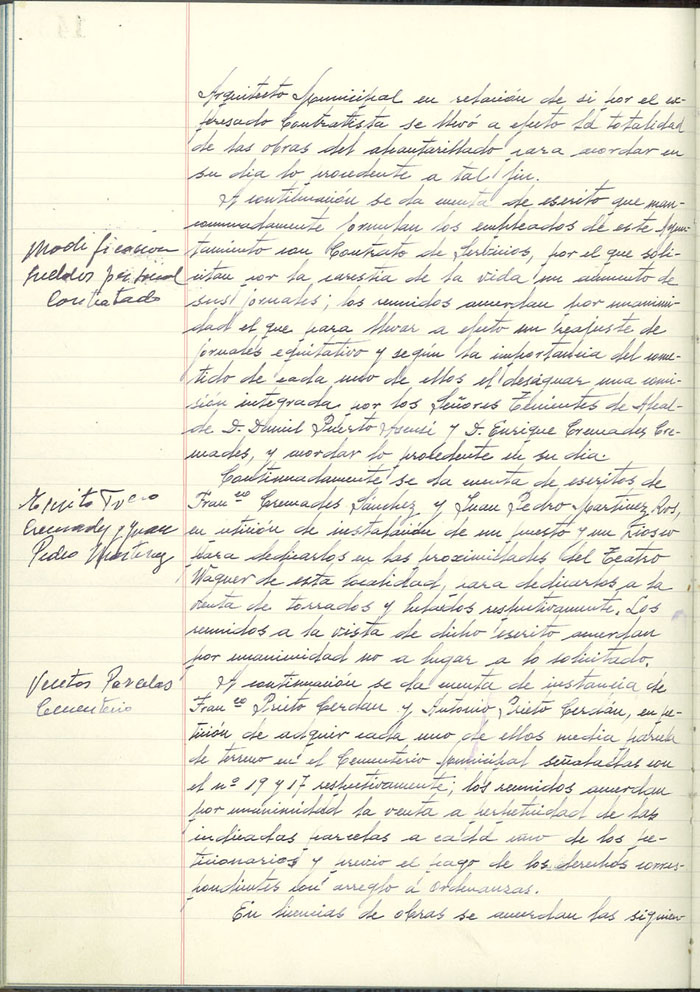 Arquitecto Municipal en relación de si por el ex-
presado Contratista se llevó a efecto la totalidad
de las obras del alcantarillado para acordar en
su dia lo procedente a tal fin.
A continuación se da cuenta de escrito que man-
comunadamente formulan los empleados de este Ayun-
Modificación
tamiento con Contrato de Servicios, por el que soli-
sueldos personal
citan por la carestia de la vida un aumento de
Contratado
sus jornales; los reunidos acuerdan por unanimi-
dad el que para llevar a efecto un reajuste de
jornales equitativo y según la importancia del come-
tido de cada uno de ellos el designar una comi-
sión integrada por los Señores Tenientes de Alcal-
de D. Daniel Puerto Asensi y D. Enrique Cremades Cre-
mades, y acordar lo procedente en su dia.
Continuadamente se da cuenta de escritos de
Escrito Fco
Franco Cremades Sánchez y Juan Pedro Martinez Ros,
Cremades y Juan
en petición de instalación de un puesto y un Kiosco
Pedro Martinez
para dedicarlos en las proximidades del Teatro
Wagner de esta localidad, para dedicarlos a la
venta de torrados y helados respectivamente. Los
reunidos a la vista de dicho escrito acuerdan
por unanimidad no a lugar a lo solicitado.
Ventas Parcelas
A continuación se da cuenta de instancia de
Cementerio
Franco Prieto Cerdan y Antonio Prieto Cerdán, en pe-
tición de adquir cada uno de ellos media parcela
de terreno en el Cementerio Municipal señaladas con
el nº 19 y 17 respectivamente; los reunidos acuerdan
por unanimidad la venta a perpetuidad de las
indicadas parcelas a cada uno de los pe-
ticionarios y previo el pago de los derechos corres-
pondientes con arreglo a Ordenanzas.
En licencias de obras se acuerdan las siguien-